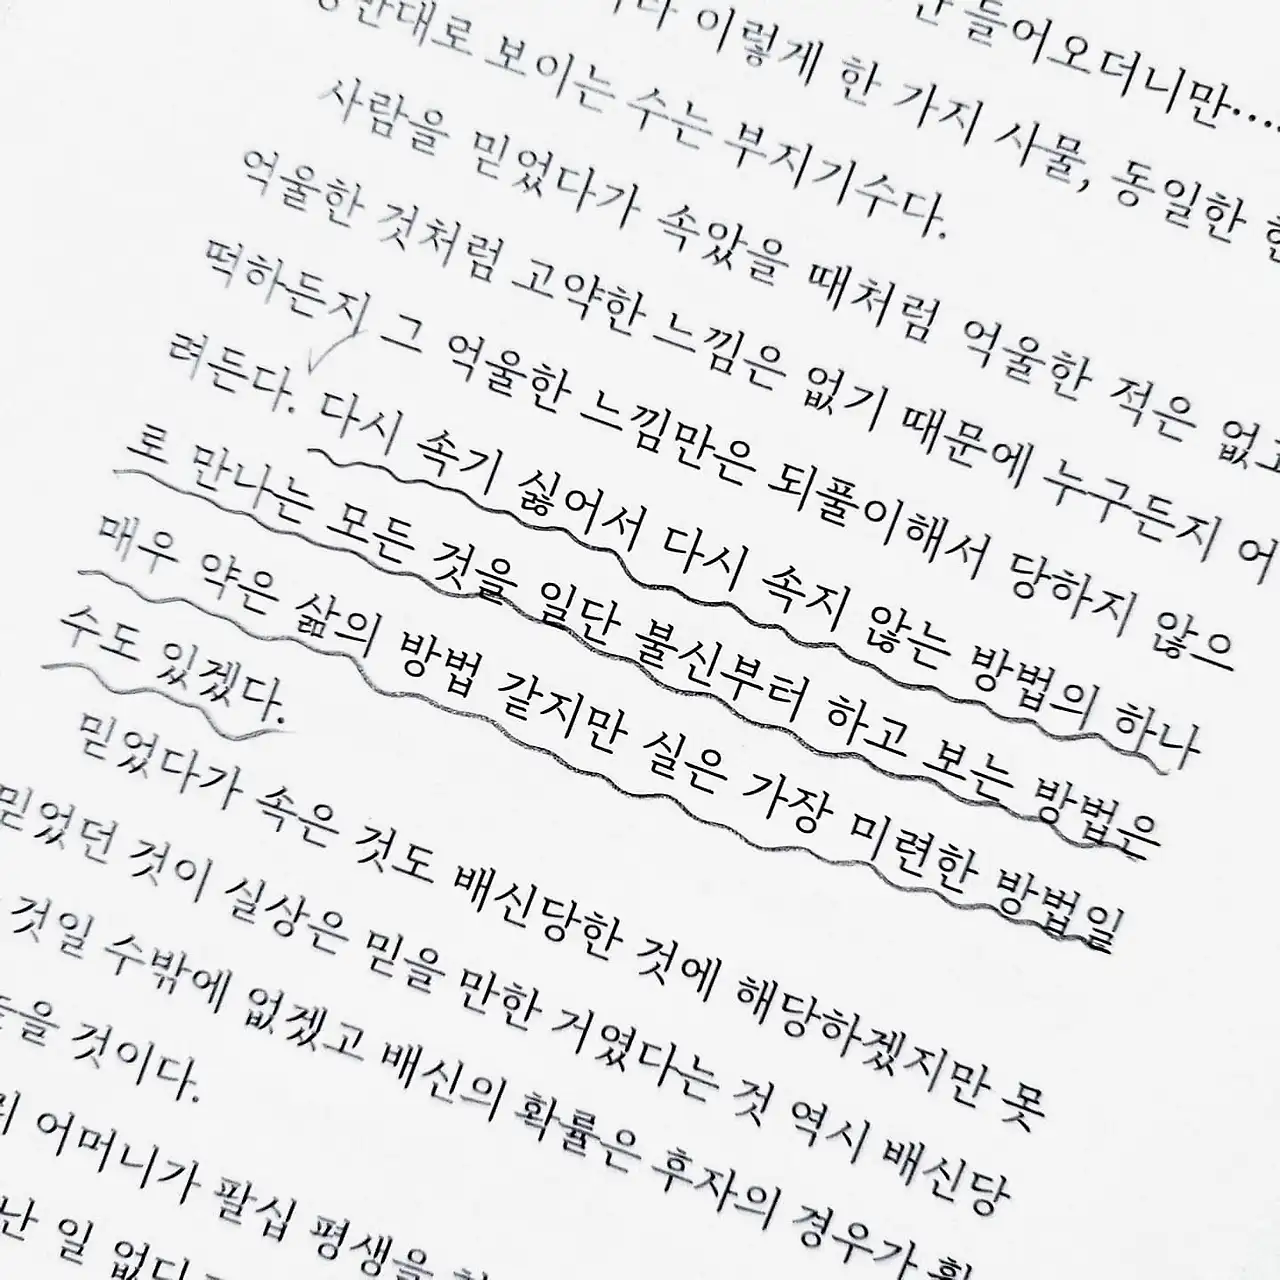 들어오더니만····
이렇게 한 가지 사물, 동일한
반대로 보이는 수는 부지기수다.
사람을 믿었다가 속았을 때처럼 억울한 적은 없고
억울한 것처럼 고약한 느낌은 없기 때문에 누구든지 어
떡하든지 그 억울한 느낌만은 되풀이해서 당하지 않으
려든다. 다시 속기 싫어서 다시 속지 않는 방법의 하나
로 만나는 모든 것을 일단 불신부터 하고 보는 방법은
매우 약은 삶의 방법 같지만 실은 가장 미련한 방법일
수도 있겠다.
믿었다가 속은 것도 배신당한 것에 해당하겠지만 못
믿었던 것이 실상은 믿을 만한 거였다는 것 역시 배신당
것일 수밖에 없겠고 배신의 확률은 후자의 경우가
것이다.
어머니가 팔십 평생을
난 일 없다